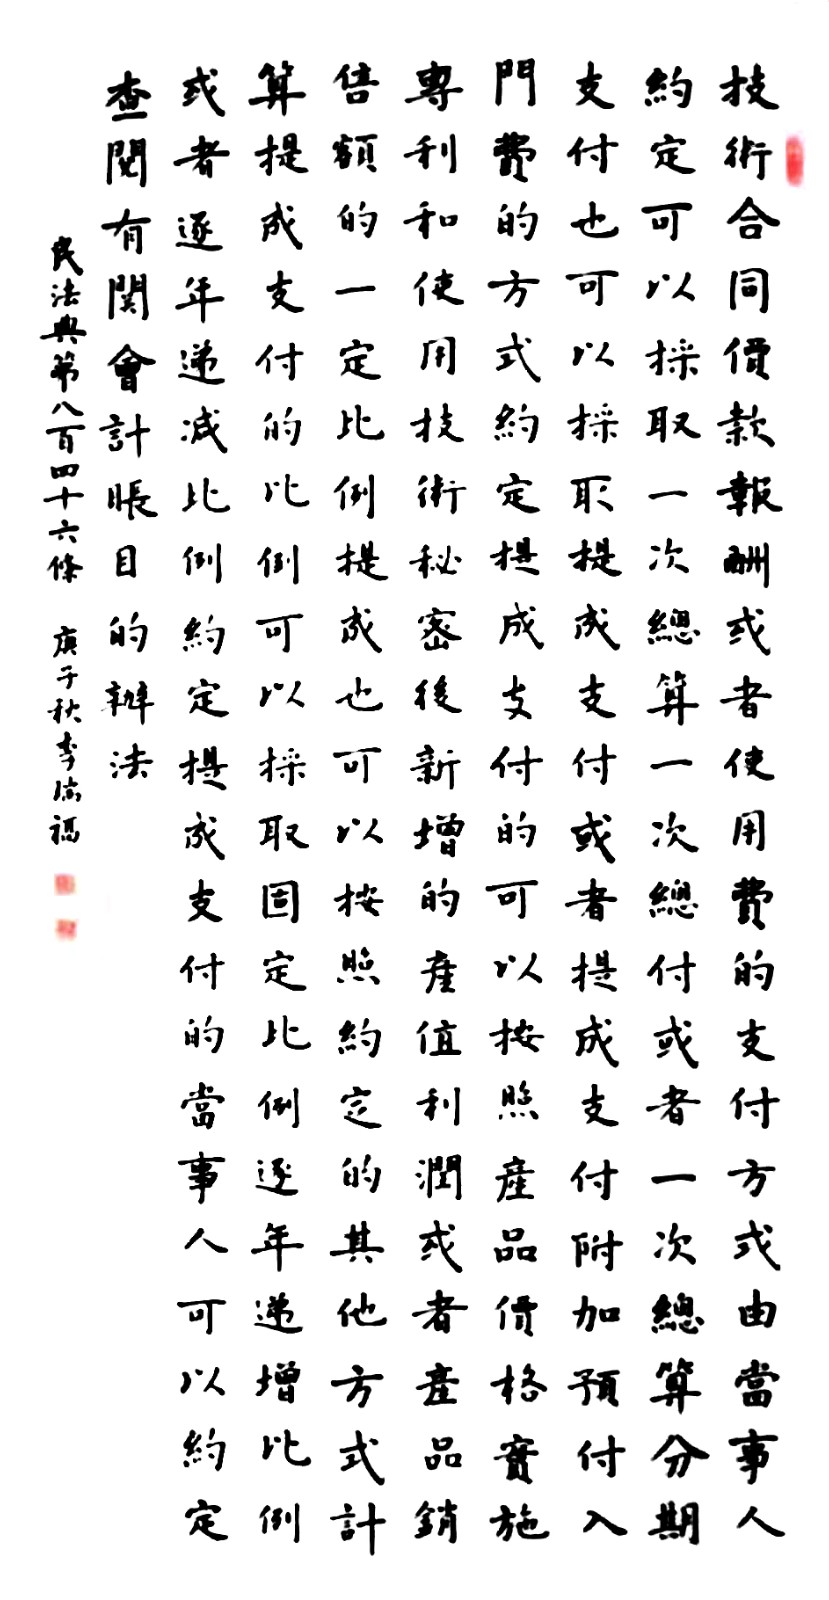 技術合同價款報酬或者使用費的支付方式由當事人
約定可以採取一次總算一次總付或者一次總算分期
支付也可以採取提成支付或者提成支付附加預付入
門費的方式約定提成支付的可以按照產品價格實施
專利和使用技術秘密後新增的產值利潤或者產品銷
售額的一定比例提成也可以按照約定的其他方式計
算提成支付的比例可以採取固定比例逐年递增比例
或者逐年递減比例約定提成支付的當事人可以約定
查閱有関會計賬目的辦法
民法典第八百四十六條 庚子秋李福